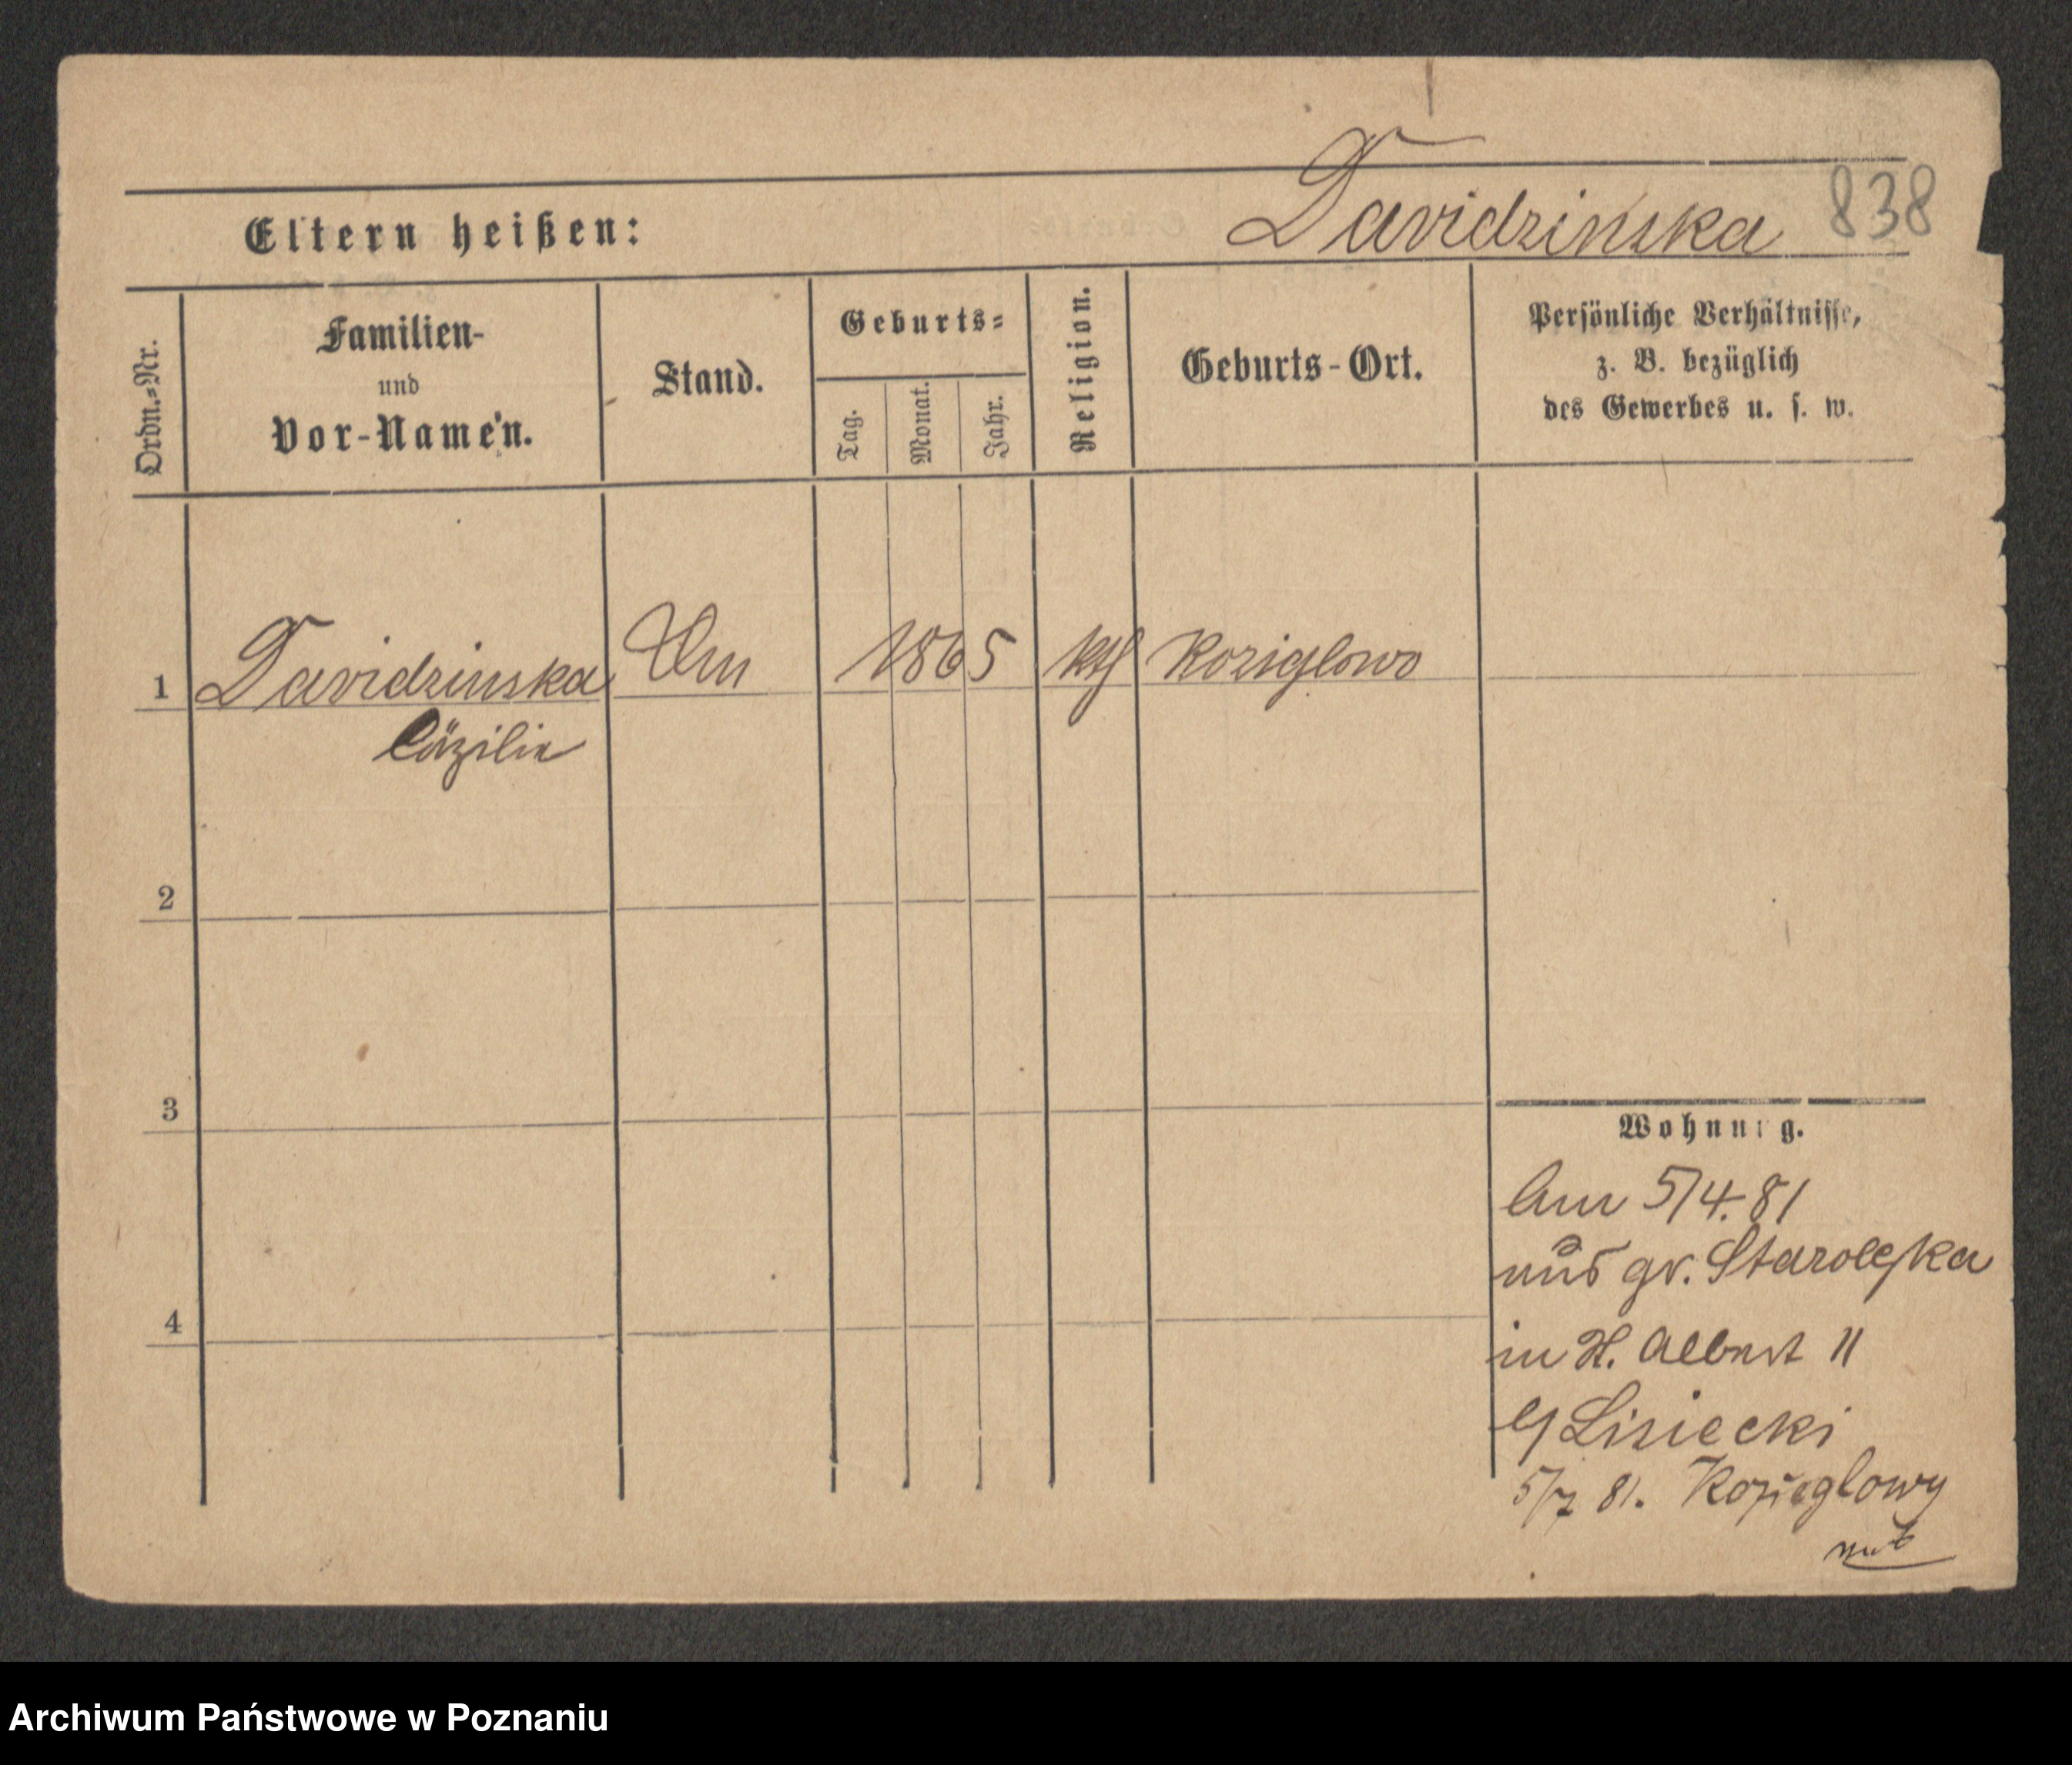 Davidzinska 838
Eltern heißen:
Ordn.-Nr.
Familien-
und
Vor-Namen.
Stand.
Geburts-
Tag.
Monat.
Jahr.
Religion.
Geburts-Ort.
Persönliche Verhältnisse,
z. B. bezüglich
des Gewerbes u. s. w.
1 Davidzinska 1865 kth Koziglowo
Cäzilie
2
3
4
Wohnung.
Am 5/4. 81
aus gr. Starolęka
in St. Albert 11
Lisiecki
5/7 81. Kozieglowy
Archiwum Państwowe w Poznaniu